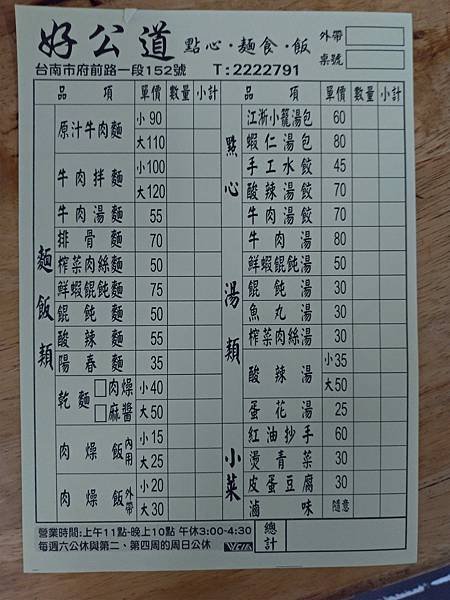 好公道 點心·麵食·飯 外帶
桌號
台南市府前路一段152號 T:2222791
品項 單價 數量 小計 品項 單價 數量 小計
麵飯類
原汁牛肉麵 小90
大110
牛肉拌麵 小100
大120
牛肉湯麵 55
排骨麵 70
榨菜肉絲麵 50
鮮蝦餛飩麵 75
餛飩麵 50
酸辣麵 55
陽春麵 35
乾麵 □肉燥 小40
□麻醬 大50
肉燥飯內用 小15
大25
肉燥飯外帶 小20
大30
點心
江浙小籠湯包 60
蝦仁湯包 80
手工水餃 45
酸辣湯餃 70
牛肉湯餃 70
湯類
牛肉湯 80
鮮蝦餛飩湯 50
餛飩湯 30
魚丸湯 30
榨菜肉絲湯 30
酸辣湯 小35
大50
蛋花湯 25
小菜
紅油抄手 60
燙青菜 30
皮蛋豆腐 30
滷味 隨意
營業時間:上午11點-晚上10點 午休3:00-4:30
每週六公休與第二、第四周的周日公休
總計